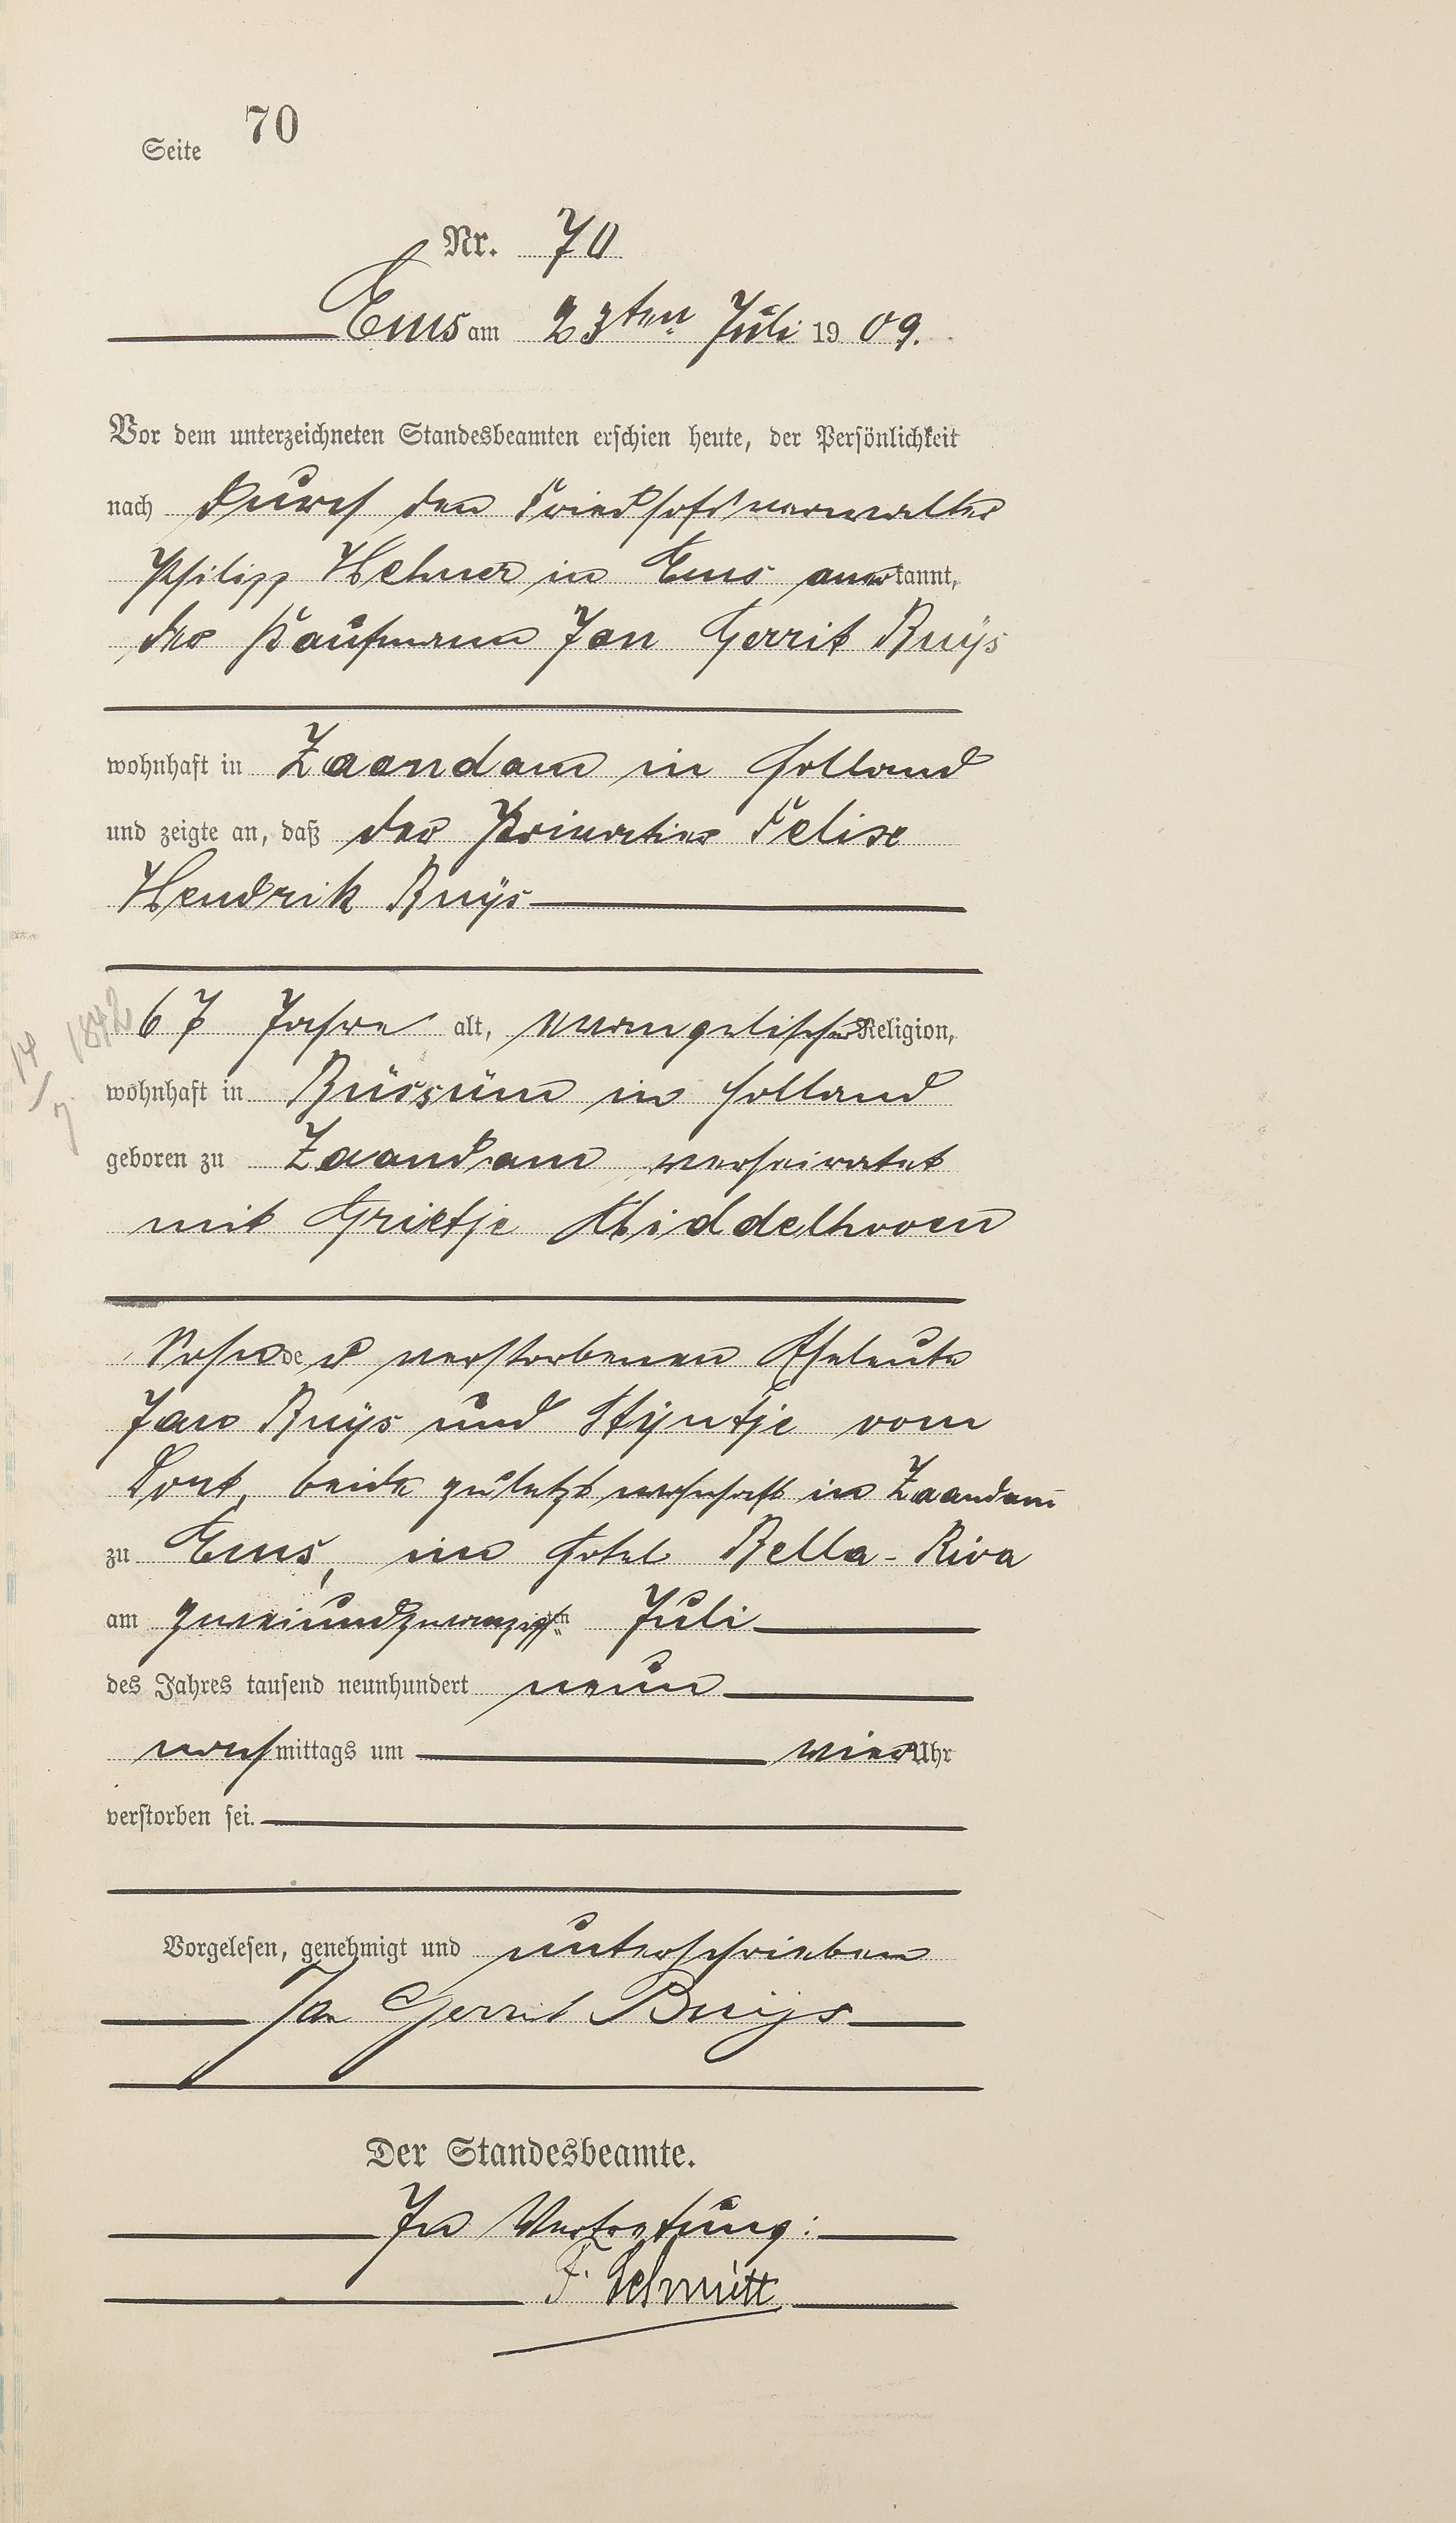 Seite 70
Nr. 70
Ems am 23ten Juli 1909.
Vor dem unterzeichneten Standesbeamten erschien heute, der Persönlichkeit
nach durch den Friedhofsverwalter
Philipp Hehner in Ems anerkannt,
der Kaufmann Jan Gerrit Buÿs
wohnhaft in Zaandam in Holland
und zeigte an, daß der Privatier Felix
Hendrik Buÿs
67 Jahre alt, evangelischer Religion,
14/7 1842
wohnhaft in Büssüm in Holland
geboren zu Zaandam, verheiratet
mit Grietje Middelhoven
Sohn der verstorbenen Eheleute
Jan Buÿs und Stÿntje vom
beide zuletzt wohnhaft in Zaandam
zu Ems, im Hotel Bella-Riva
am zweiundzwanzigsten Juli
des Jahres tausend neunhundert neun
nachmittags um vier Uhr
verstorben sei.
Vorgelesen, genehmigt und unterschrieben
Jan Gerrit Buijs
Der Standesbeamte.
In Vertretung:
F. Schmitt